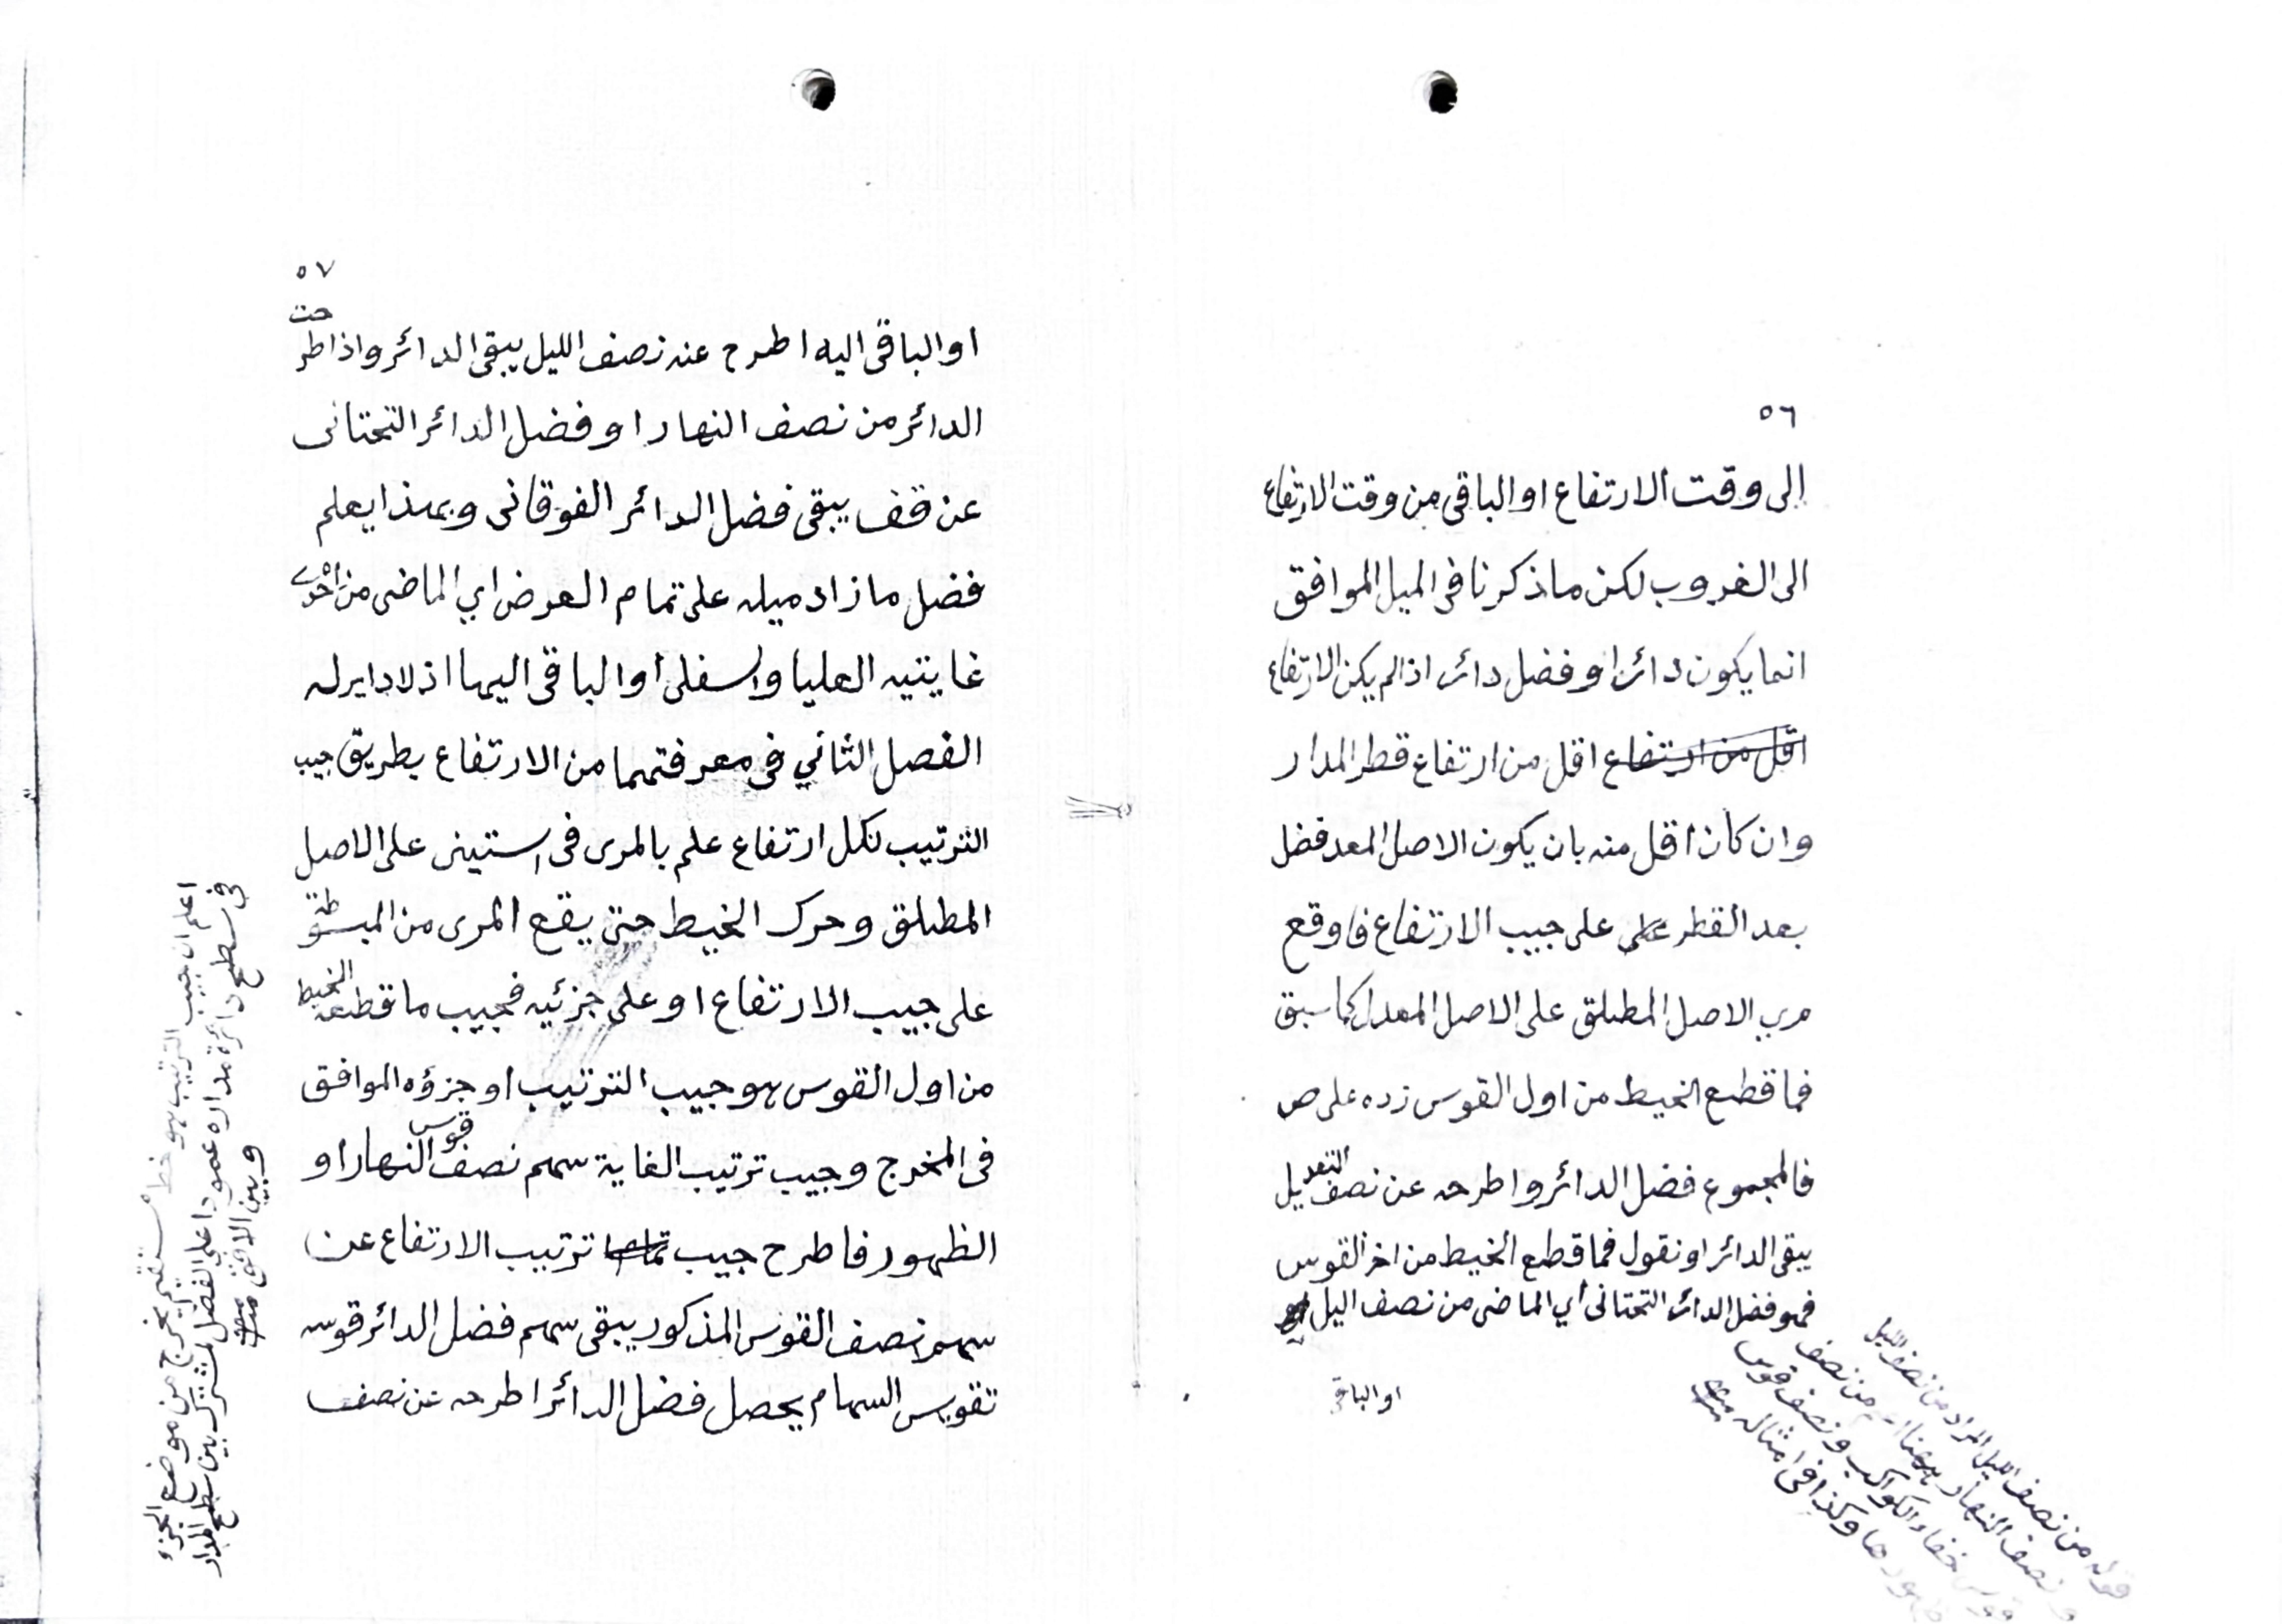 ٥٦
إلى وقت الارتفاع او الباقى من وقت الارتفاع
الى الغروب لكن ما ذكرنا فى الميل الموافق
انما يكون دائرا وفضل دائر اذا لم يكن الارتفاع
اقل من ارتفاع اقل من ارتفاع قطر المدار
وان كان اقل منه بان يكون الاصل المعد فضل
بعد القطر على على جيب الارتفاع فاوقع
مري الاصل المطلق على الاصل المعدل كما سبق
فما قطع الخيط من اول القوس زده على ص
فالمجموع فضل الدائر واطرحه عن نصف التعديل
يبقى الدائر او نقول فما قطع الخيط من اخر القوس
فهو فضل الدائر التحتانى أي الماضى من نصف اليل
او الباقى
قوله من نصف الليل المراد من نصف الليل
ونصف النهار ههنا اعم من نصف
قوس خفاء الكواكب ونصف قوس
ظهورها وكذا فى امثاله منه
٥٧
او الباقى اليه اطرح عنه نصف الليل يبقى الدائر واذا طرحت
الدائر من نصف النهار او فضل الدائر التحتانى
عن قف يبقى فضل الدائر الفوقانى وبهذا يعلم
فضل ما زاد ميله على تمام العرض اي الماضى من احدى
غايتيه العليا والسفلى أو الباقى اليها اذ لا دايرله
الفصل الثاني فى معرفتهما من الارتفاع بطريق جيب
الترتيب لكل ارتفاع علم بالمرى فى الستينى على الاصل
المطلق وحرك الخيط حتى يقع المرى من المبسوطة
على جيب الارتفاع او على جزئيه فجيب ما قطعه الخيط
من اول القوس هو جيب الترتيب او جزؤه الموافق
فى المخرج وجيب ترتيب الغاية سهم نصف قوس النهار او
الظهور فاطرح جيب تمام ترتيب الارتفاع عن
سهم نصف القوس المذكور يبقى سهم فضل الدائر قوسه
تقويس السهام يحصل فضل الدائر اطرحه عن نصف
اعلم ان جيب الترتيب هو خط مستقيم يخرج من موضع الجزء
فى سطح دائرة مداره عمودا على الفصل المشترك بين سطح المدار
وبين الافق منه